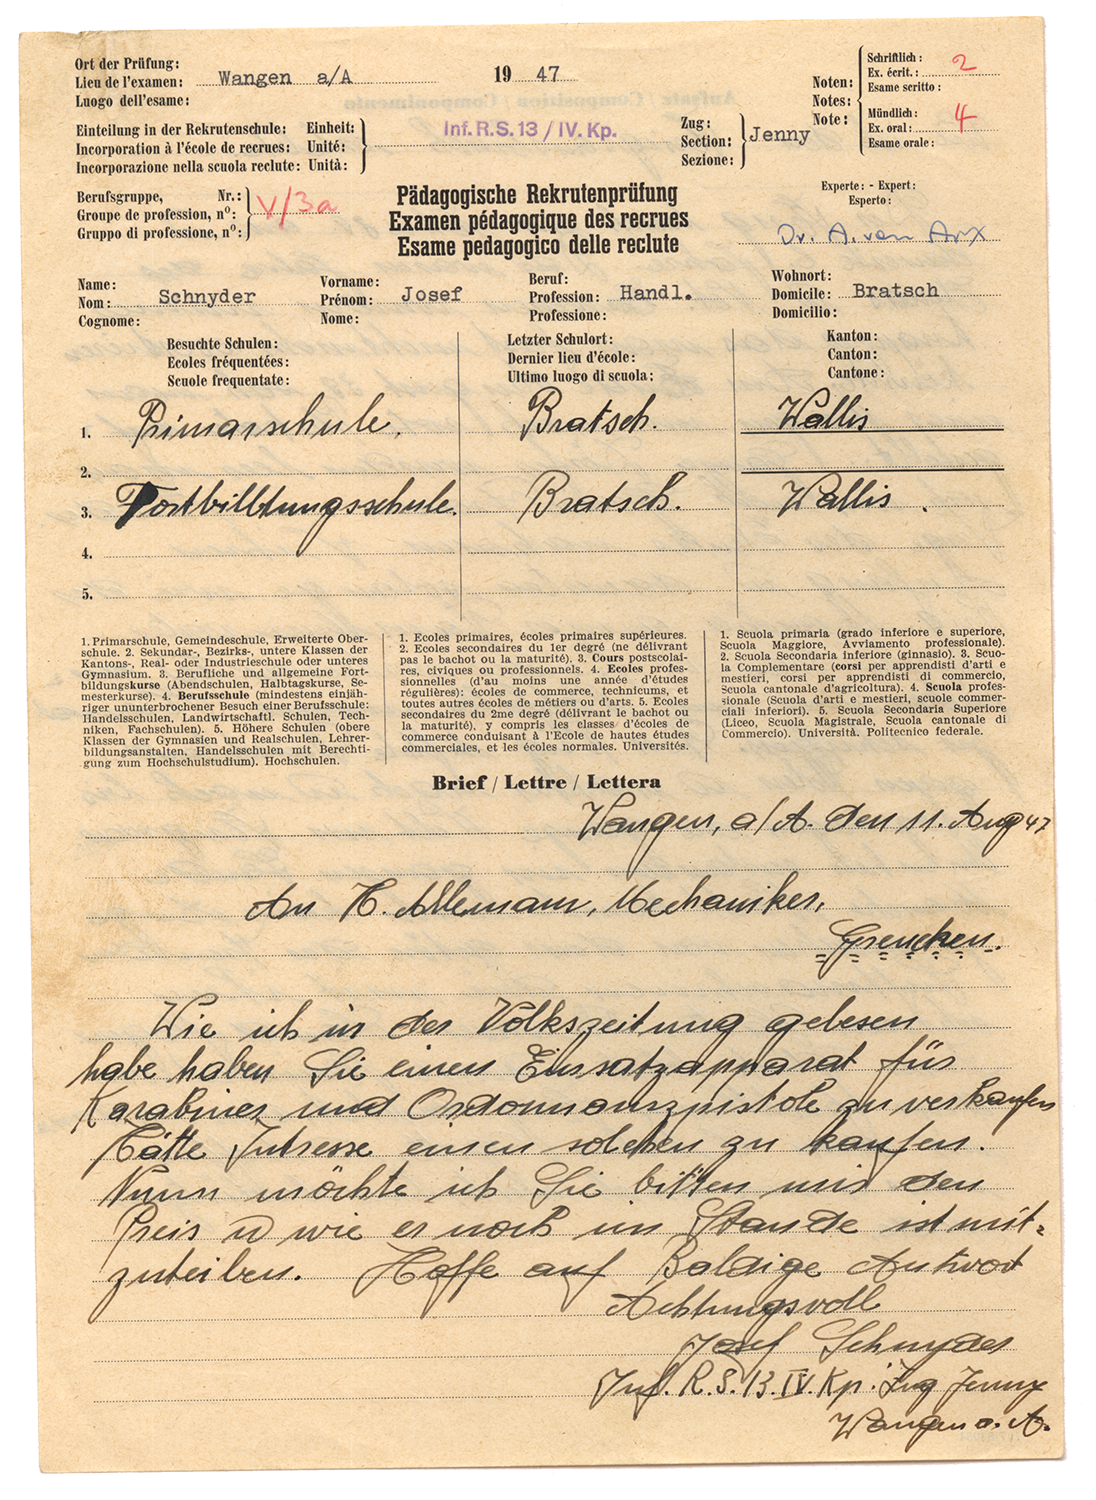 Ort der Prüfung:
Lieu de l'examen: Wangen a/A 19 47
Luogo dell'esame:
Noten:
Notes:
Note:
Schriftlich :
Ex. écrit. : 2
Esame scritto :
Mündlich :
Ex. oral : 4
Esame orale :
Einteilung in der Rekrutenschule: Einheit:
Incorporation à l'école de recrues: Unité: Inf. R. S. 13 / IV. Kp.
Incorporazione nella scuola reclute: Unità:
Zug :
Section: Jenny
Sezione:
Berufsgruppe, Nr.:
Groupe de profession, nº: V/3a
Gruppo di professione, nº:
Pädagogische Rekrutenprüfung
Examen pédagogique des recrues
Esame pedagogico delle reclute
Experte: - Expert:
Esperto:
Dr. A. von Arx
Name:
Nom: Schnyder
Cognome:
Vorname:
Prénom: Josef
Nome:
Beruf:
Profession: Handl.
Professione:
Wohnort:
Domicile: Bratsch
Domicilio:
Besuchte Schulen:
Ecoles fréquentées:
Scuole frequentate:
Letzter Schulort:
Dernier lieu d'école:
Ultimo luogo di scuola:
Kanton:
Canton:
Cantone:
1. Primarschule. Bratsch. Wallis
2.
3. Fortbilltungsschule. Bratsch. Wallis .
4.
5.
1. Primarschule, Gemeindeschule, Erweiterte Ober-
schule. 2. Sekundar-, Bezirks-, untere Klassen der
Kantons-, Real- oder Industrieschule oder unteres
Gymnasium. 3. Berufliche und allgemeine Fort-
bildungskurse (Abendschulen, Halbtagskurse, Se-
mesterkurse). 4. Berufsschule (mindestens einjäh-
riger ununterbrochener Besuch einer Berufsschule:
Handelsschulen, Landwirtschaftl. Schulen, Tech-
niken, Fachschulen). 5. Höhere Schulen (obere
Klassen der Gymnasien und Realschulen, Lehrer-
bildungsanstalten, Handelsschulen mit Berechti-
gung zum Hochschulstudium). Hochschulen.
1. Ecoles primaires, écoles primaires supérieures.
2. Ecoles secondaires du 1er degré (ne délivrant
pas le bachot ou la maturité). 3. Cours postscolai-
res, civiques ou professionnels. 4. Ecoles profes-
sionnelles (d'au moins une année d'études
régulières): écoles de commerce, technicums, et
toutes autres écoles de métiers ou d'arts. 5. Ecoles
secondaires du 2me degré (délivrant le bachot ou
la maturité). y compris les classes d'écoles de
commerce conduisant à l'Ecole de hautes études
commerciales, et les écoles normales. Universités.
1. Scuola primaria (grado inferiore e superiore,
Scuola Maggiore, Avviamento professionale).
2. Scuola Secondaria inferiore (ginnasio). 3. Scuo-
la Complementare (corsi per apprendisti d'arti e
mestieri, corsi per apprendisti di commercio,
Scuola cantonale d'agricoltura). 4. Scuola profes-
sionale (Scuola d'arti e mestieri, scuole commer-
ciali inferiori). 5. Scuola Secondaria Superiore
(Liceo, Scuola Magistrale, Scuola cantonale di
Commercio). Università. Politecnico federale.
Brief / Lettre / Lettera
Wangen, a/A. den 11. Aug 47
An H. Allemann, Mechaniker,
Grenchen.
Wie ich in der Volkszeitung gelesen
habe haben Sie einen Einsatzapparat für
Karabiner und Ordonnanzpistole zu verkaufen
Hätte Intresse einen solchen zu kaufen.
Nunn möchte ich Sie bitten mir den
Preis u wie er noch im Stande ist mit-
zuteihen. Hoffe auf Baldige Antwort
Achtungsvoll
Josef Schnyder
Inf. R. S. 13. IV. Kp. Zug Jenny
Wangen a. A.